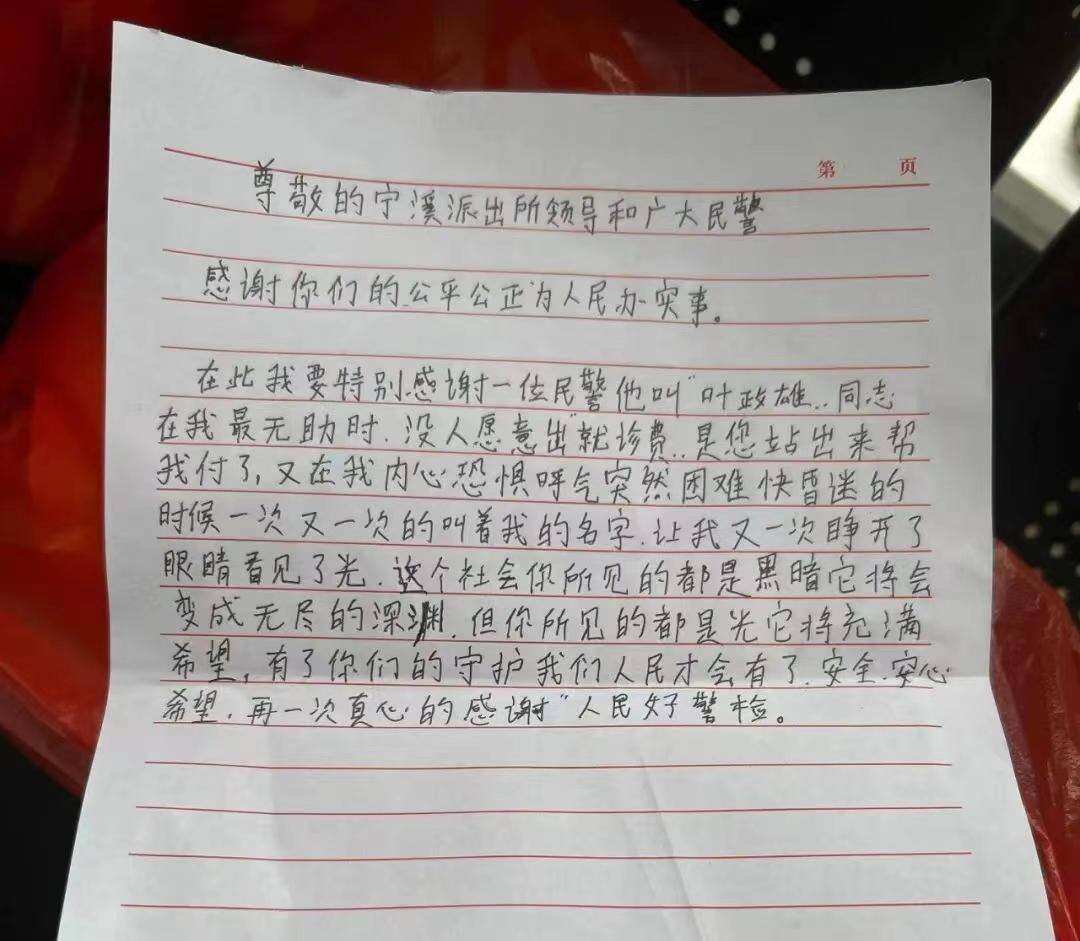 第 页
尊敬的宁溪派出所领导和广大民警
感谢你们的公平公正为人民办实事。
在此我要特别感谢一位民警他叫"叶政雄..同志
在我最无助时.没人愿意出"就诊费..是您站出来帮
我付了,又在我内心恐惧呼气突然困难快昏迷的
时候一次又一次的叫着我的名字.让我又一次睁开了
眼睛看见了光.这个社会你所见的都是黑暗它将会
变成无尽的深渊.但你所见的都是光它将充满
希望,有了你们的守护我们人民才会有了.安全.安心
希望.再一次真心的感谢"人民好警检。